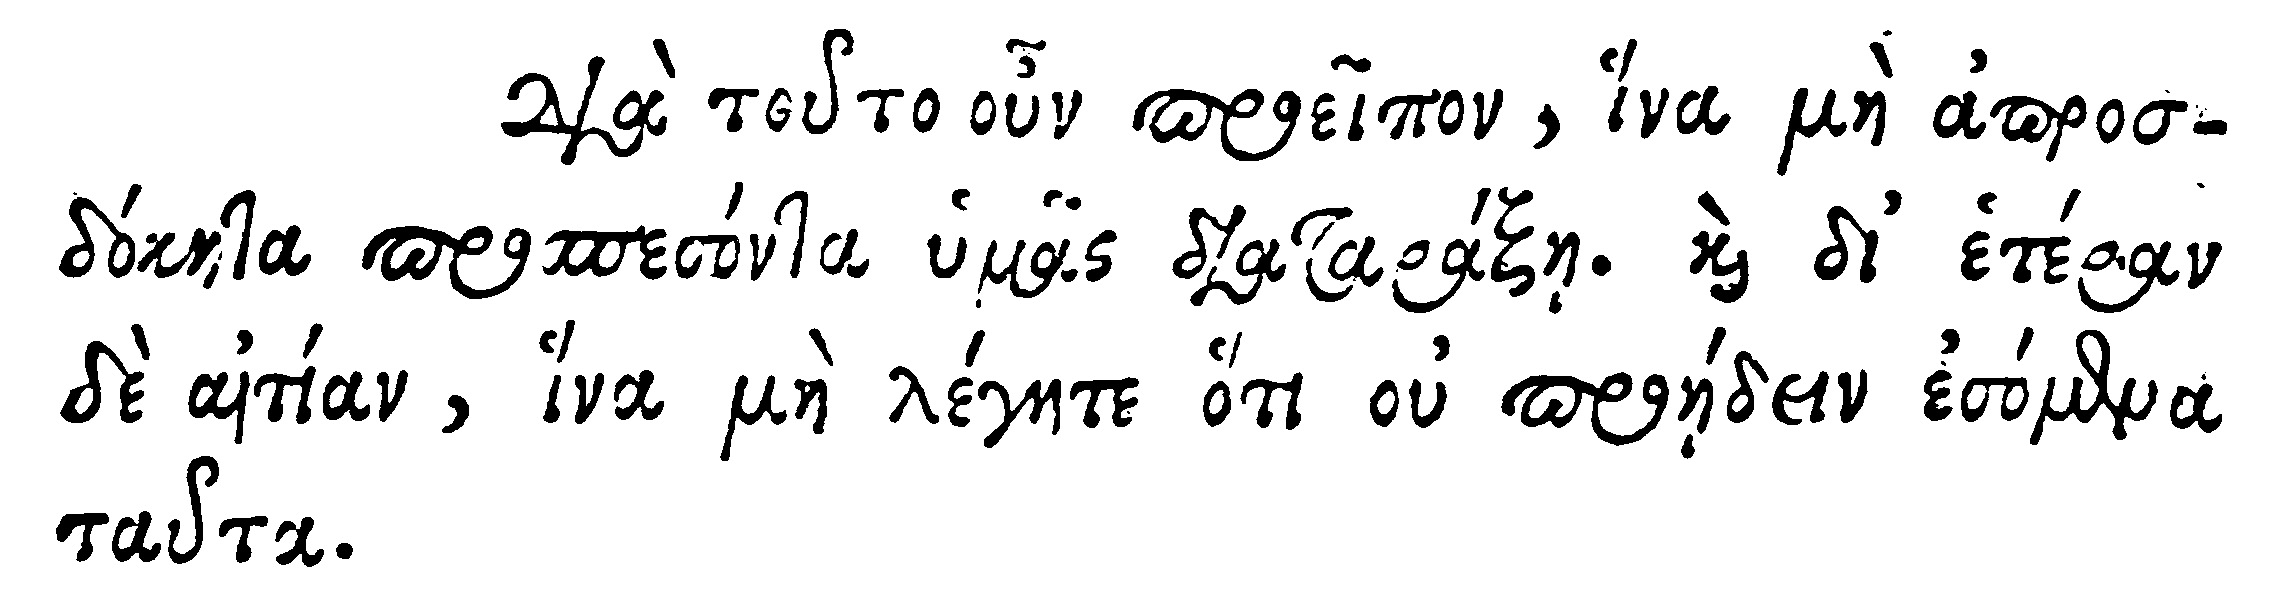 Διὰ τοῦτο οὖν προεῖπον, ἵνα μὴ ἀπροσ-
δόκητα προσπεσόντα ὑμᾶς διαταράξῃ. καὶ δι’ ἑτέραν
δὲ αἰτίαν, ἵνα μὴ λέγητε ὅτι οὐ προῄδειν ἐσόμενα
ταῦτα.